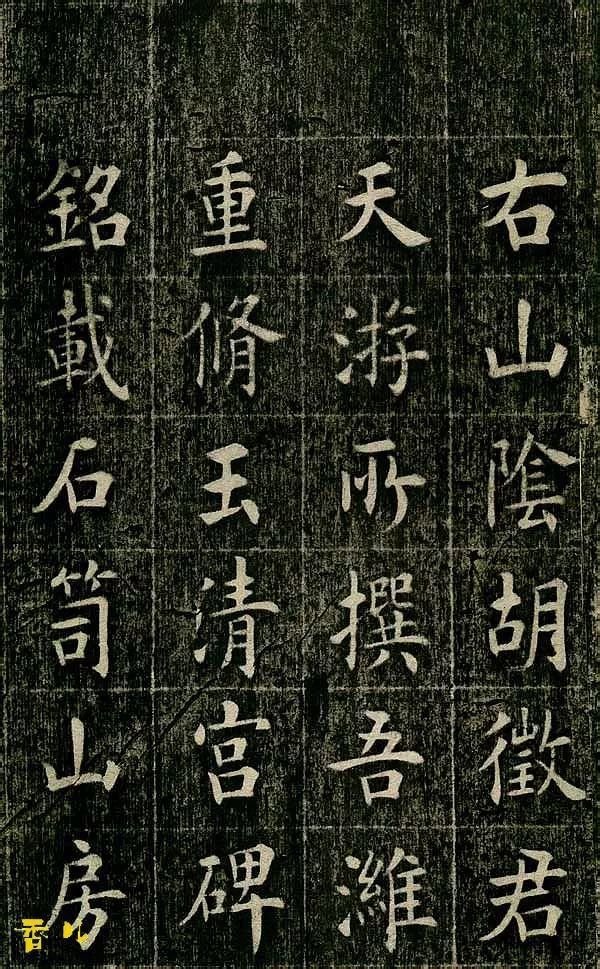 右山陰胡徵君
天游所撰吾濰
重脩玉清宮碑
銘載石笥山房